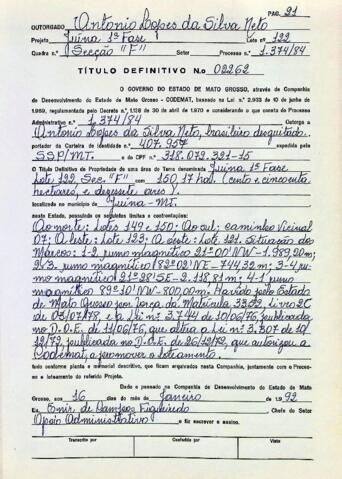 PAG. 21
OUTORGADO Antonio Lopes da Silva Neto
Projeto Juína 1ª Fase Lote nº 122
Quadra n.º Secção "F" Setor Processo n.º 1.374/84
TÍTULO DEFINITIVO N.o 02262
O GOVERNO DO ESTADO DE MATO GROSSO, através de Companhia
de Desenvolvimento do Estado de Mato Grosso - CODEMAT, baseado na Lei 2.933 de 10 de junho
de 1969, regulamentada pelo Decreto n.º 1.138 de 30 de abril de 1970 e considerando o que consta do Processo
Administrativo n.º 1.374/84 Outorga a
Antonio Lopes da Silva Neto, brasileiro desquitado.
portador da Carteira de Identidade n.º 407.957 expedida pelo
SSP/MT. e do CPF n.º 318.072.321-15
O Título Definitivo de Propriedade de uma área de Terra denominada Juína 1ª Fase
Lote 122 Sec. "F" com 150,17 ha. (cento e cincoenta
hectares, e dezesete ares).
localizada no município de Juína - MT.
neste Estado, possuindo os seguintes limites e confrontações:
Ao norte: Lotes 149 e 150; Ao sul: caminho Vicinal
07; A leste: Lote 123; O oeste: Lote 121. Situação dos
Marcos: 1-2 rumo magnético 21º00'NW-1.989,90m;
2-3 rumo magnético 82º02'NE-744,32 m; 3-4 ru-
mo magnético 21º22'SE-2.118,81m; 4-1 rumo
magnético 89º10'NW-800,00m. Havido pelo Estado
de Mato Grosso por força da Matrícula 33, Livro 2C
de 03/07/78, e a Lei nº 3.744 de 10/06/76, publicada
no D.O.E. de 11/06/76, que altera a Lei nº 3.307 de 10/
12/72, publicada no D.O.E. de 26/12/72, que autorizou a
Codemat, a promover o loteamento.
tudo conforme planta e memorial descritivo, que ficam arquivados nesta Companhia, juntamente com o Proces-
so e loteamento do referido Projeto.
Dado e passado na Companhia de Desenvolvimento do Estado de Mato
Grosso, aos 16 dias do mês de Janeiro de 1992
Eu, Enir de Campos Figueiredo Chefe do Setor
Apoio Administrativo o fiz escrever e assino.
Transcrito por Conferido por Visto